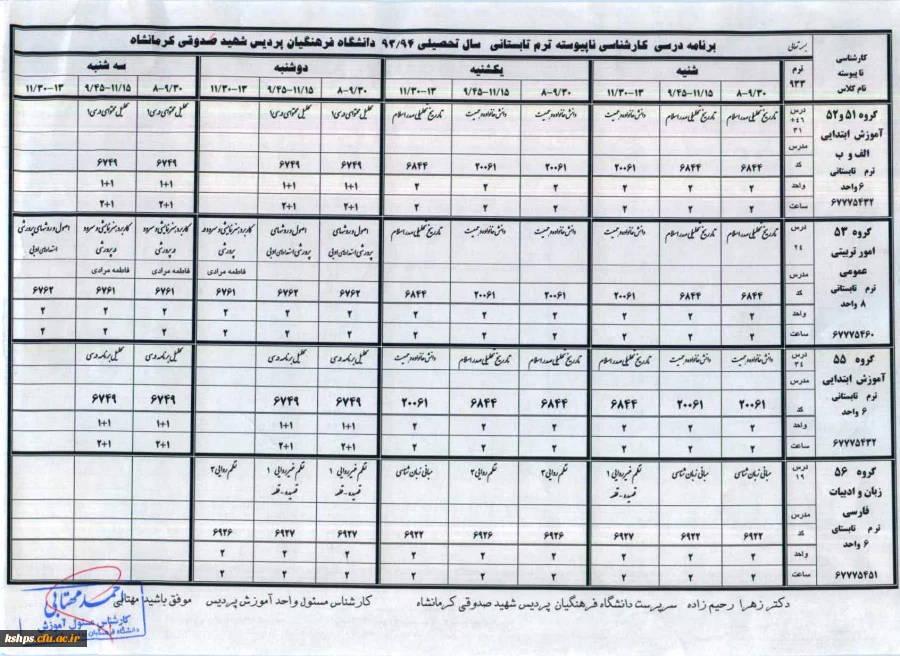 بسمه تعالی
برنامه درسی کارشناسی ناپیوسته ترم تابستانی سال تحصیلی ۹۳/۹۴ دانشگاه فرهنگیان پردیس شهید صدوقی کرمانشاه
کارشناسی ناپیوسته نام کلاس
ترم ۹۳۳
شنبه یکشنبه دوشنبه سه شنبه
۸-۹/۳۰ ۹/۴۵-۱۱/۱۵ ۱۱/۳۰-۱۳ ۸-۹/۳۰ ۹/۴۵-۱۱/۱۵ ۱۱/۳۰-۱۳ ۸-۹/۳۰ ۹/۴۵-۱۱/۱۵ ۱۱/۳۰-۱۳ ۸-۹/۳۰ ۹/۴۵-۱۱/۱۵ ۱۱/۳۰-۱۳
گروه ۵۱ و ۵۲ آموزش ابتدایی الف و ب ترم تابستانی ۶ واحد ۶۷۷۷۵۴۳۲
درس تاریخ تحلیلی صدر اسلام تاریخ تحلیلی صدر اسلام دانش خانواده و جمعیت دانش خانواده و جمعیت دانش خانواده و جمعیت تاریخ تحلیلی صدر اسلام تحلیل محتوای درسی۱ تحلیل محتوای درسی۱ تحلیل محتوای درسی۱ تحلیل محتوای درسی۱
مدرس
کد ۶۸۴۴ ۶۸۴۴ ۲۰۰۶۱ ۲۰۰۶۱ ۲۰۰۶۱ ۶۸۴۴ ۶۷۴۹ ۶۷۴۹ ۶۷۴۹ ۶۷۴۹
واحد ۲ ۲ ۲ ۲ ۲ ۲ ۱+۱ ۱+۱ ۱+۱ ۱+۱
ساعت ۲ ۲ ۲ ۲ ۲ ۲ ۲+۱ ۲+۱ ۲+۱ ۲+۱
گروه ۵۳ امور تربیتی عمومی ترم تابستانی ۸ واحد ۶۷۷۷۵۴۶۰
درس ۲۴ تاریخ تحلیلی صدر اسلام تاریخ تحلیلی صدر اسلام دانش خانواده و جمعیت دانش خانواده و جمعیت دانش خانواده و جمعیت تاریخ تحلیلی صدر اسلام اصول و روشهای پرورشی استعدادهای ادبی اصول و روشهای پرورشی استعدادهای ادبی کاربرد هنر نمایشی و سرود در پرورشی کاربرد هنر نمایشی و سرود در پرورشی کاربرد هنر نمایشی و سرود در پرورشی اصول و روشهای پرورشی استعدادهای ادبی
مدرس فاطمه مرادی فاطمه مرادی فاطمه مرادی
کد ۶۸۴۴ ۶۸۴۴ ۲۰۰۶۱ ۲۰۰۶۱ ۲۰۰۶۱ ۶۸۴۴ ۶۷۶۲ ۶۷۶۲ ۶۷۶۱ ۶۷۶۱ ۶۷۶۱ ۶۷۶۲
واحد ۲ ۲ ۲ ۲ ۲ ۲ ۲ ۲ ۲ ۲ ۲ ۲
ساعت ۲ ۲ ۲ ۲ ۲ ۲ ۲ ۲ ۲ ۲ ۲ ۲
گروه ۵۵ آموزش ابتدایی ترم تابستانی ۶ واحد ۶۷۷۷۵۴۳۲
درس ۳۴ دانش خانواده و جمعیت دانش خانواده و جمعیت تاریخ تحلیلی صدر اسلام تاریخ تحلیلی صدر اسلام تاریخ تحلیلی صدر اسلام دانش خانواده و جمعیت تحلیل برنامه درسی تحلیل برنامه درسی تحلیل برنامه درسی تحلیل برنامه درسی
مدرس
کد ۲۰۰۶۱ ۲۰۰۶۱ ۶۸۴۴ ۶۸۴۴ ۶۸۴۴ ۲۰۰۶۱ ۶۷۴۹ ۶۷۴۹ ۶۷۴۹ ۶۷۴۹
واحد ۲ ۲ ۲ ۲ ۲ ۲ ۱+۱ ۱+۱ ۱+۱ ۱+۱
ساعت ۲ ۲ ۲ ۲ ۲ ۲ ۲+۱ ۲+۱ ۲+۱ ۲+۱
گروه ۵۶ زبان و ادبیات فارسی ترم تابستانی ۶ واحد ۶۷۷۷۵۴۵۱
درس ۱۹ مبانی زبان شناسی مبانی زبان شناسی نظم غیر روایی ۱ قصیده-قطعه نظم روایی۲ نظم روایی۲ مبانی زبان شناسی نظم غیر روایی ۱ قصیده-قطعه نظم غیر روایی ۱ قصیده-قطعه نظم روایی۲
مدرس
کد ۶۹۲۲ ۶۹۲۲ ۶۹۲۷ ۶۹۲۶ ۶۹۲۶ ۶۹۲۲ ۶۹۲۷ ۶۹۲۷ ۶۹۲۶
واحد ۲ ۲ ۲ ۲ ۲ ۲ ۲ ۲ ۲
ساعت ۲ ۲ ۲ ۲ ۲ ۲ ۲ ۲ ۲
دکتر زهرا رحیم زاده سرپرست دانشگاه فرهنگیان پردیس شهید صدوقی کرمانشاه کارشناس مسئول واحد آموزش پردیس موفق باشید مهتابی
احمد مهتابی
کارشناس مسئول آموزش
دانشگاه فرهنگیان
kshps.cfu.ac.ir